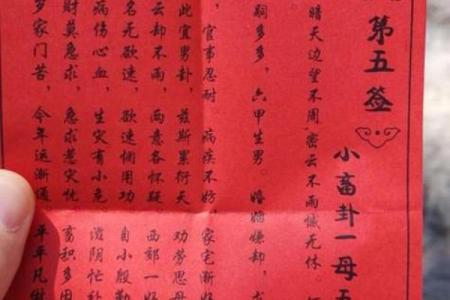 第五签
小畜卦一母
暗天边望不周，密云不雨憾无休。
嗣多多，六甲生男。婚姻嫌却，
官事忍耐 病疾不妨，家宅渐好
此宜男卦，兹斯累衍天 劝劳思母
云却不雨，两意各怀疑。西郊一好
名无欲速，欲速惘用功 自小殷勤
病伤心血，生灾有小危。 阴忙
财莫急求，急求惹灾忧 畜积多
罗家门苦，今年运渐通 年年凡